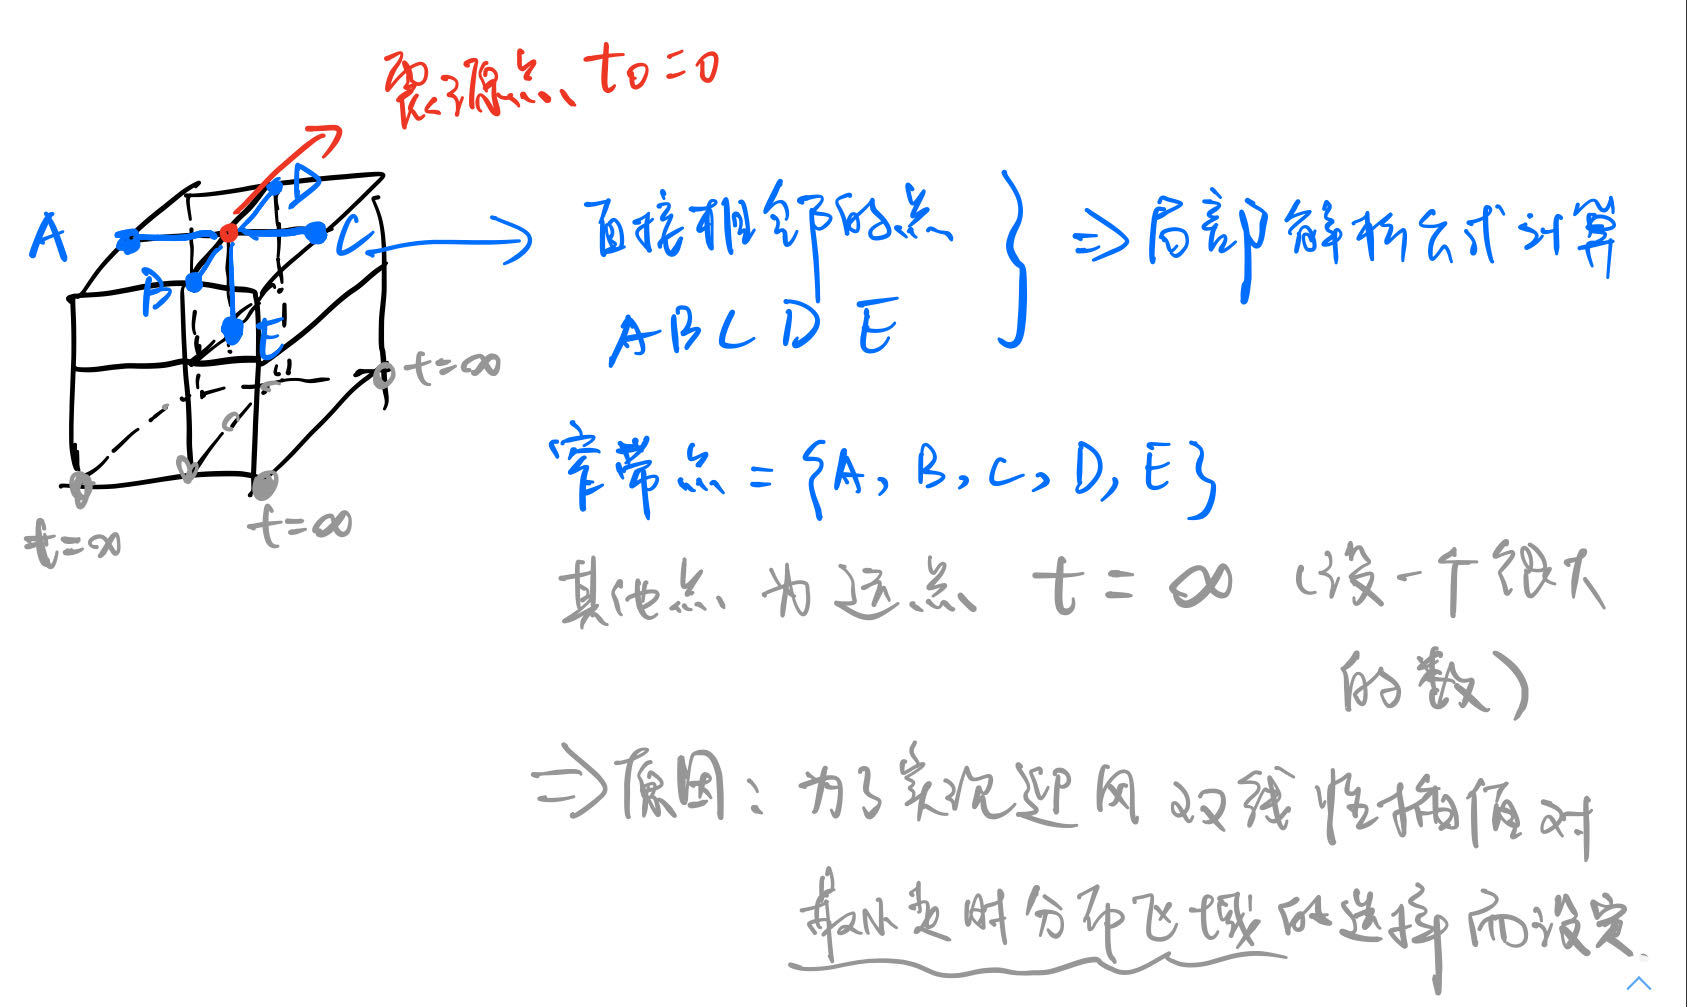 震源点 t₀=0
A
D
C
B
E
直接相邻的点
A B C D E
⇒局部解析公式计算
t=∞
t=∞
t=∞
窄带点={A, B, C, D, E}
其他点为远点 t=∞ (设一个很大
的数)
⇒原因: 为了实现迎风双线性插值对
最小走时分布区域的选择而设定